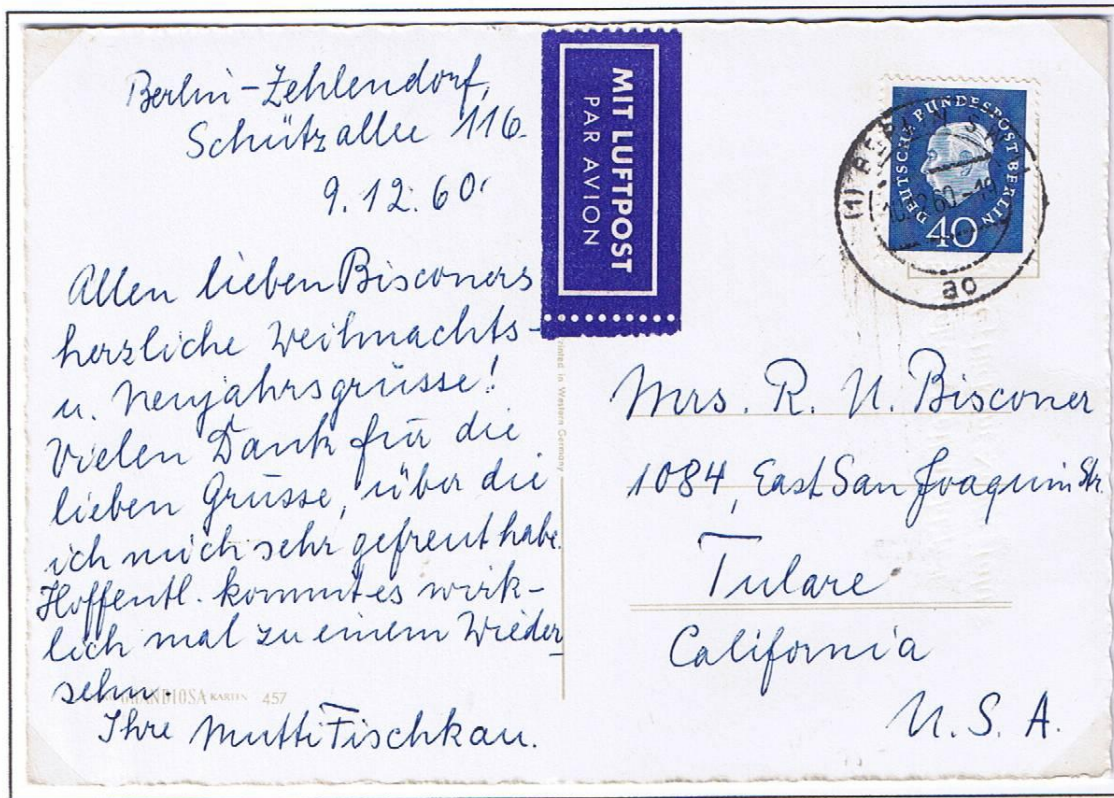 Berlin-Zehlendorf,
Schützallee 116.
9.12.60.
Allen lieben Bisconers
herzliche Weihnachts-
u. Neujahrsgrüsse!
Vielen Dank für die
lieben Grüsse, über die
ich mich sehr gefreut habe.
Hoffentl. kommt es wirk-
lich mal zu einem Wieder-
sehn.
Ihre Mutti Fischkau.
KARTEN 457
MIT LUFTPOST
PAR AVION
Printed in Western Germany
DEUTSCHE BUNDESPOST BERLIN
40
(1) BERLIN SW
60-19
ao
Mrs. R. N. Bisconer
1084, East San Joaquin Str.
Tulare
California
U. S. A.